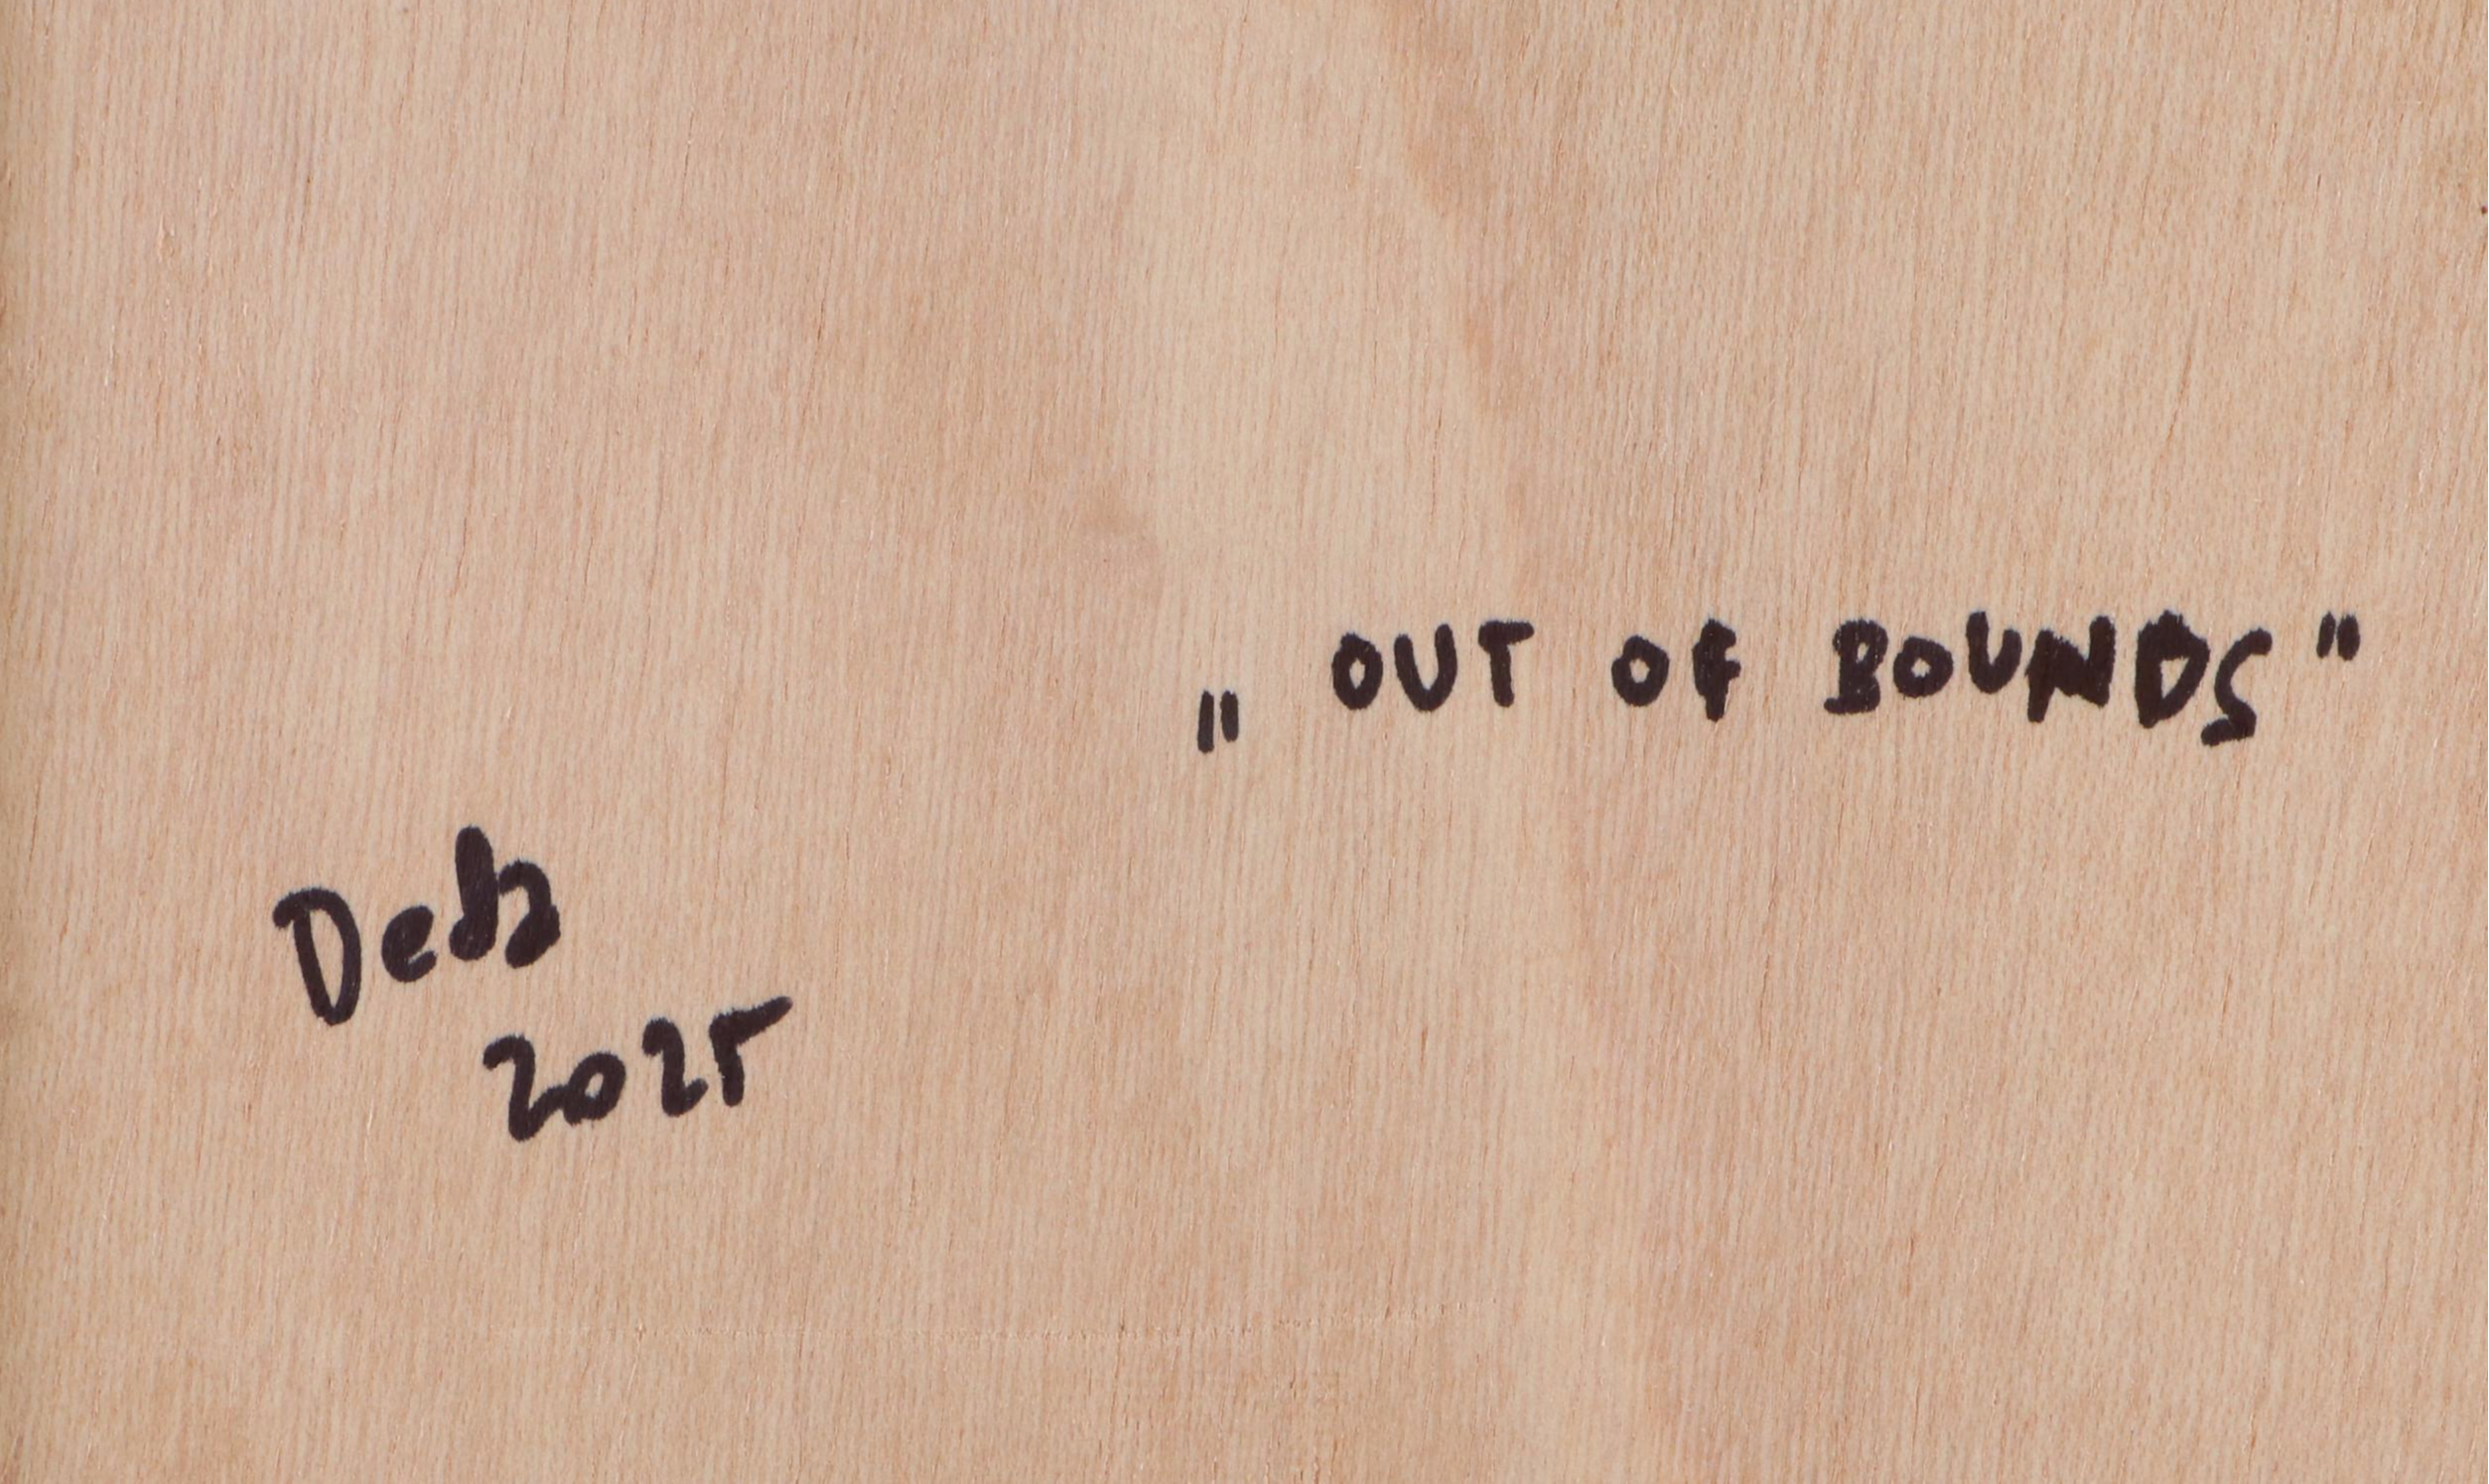 „ OUT OF BOUNDS "
Deb
2025